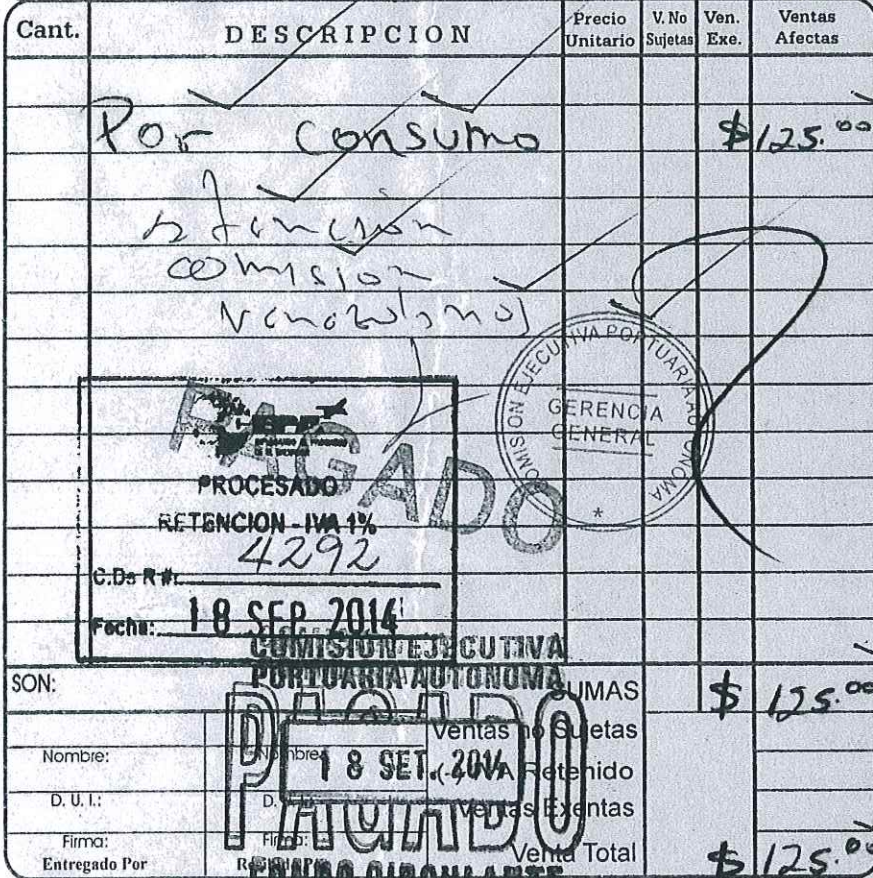 Cant. DESCRIPCION Precio Unitario V. No Sujetas Ven. Exe. Ventas Afectas
Por consumo $125.00
atencion
comision
venezolanos
COMISION EJECUTIVA PORTUARIA AUTONOMA
GERENCIA
GENERAL
*
PAGADO
CEPA
PROCESADO
RETENCION - IVA 1%
C.De R #: 4292
Fecha: 18 SEP 2014
COMISION EJECUTIVA
PORTUARIA AUTONOMA
PAGADO
18 SET. 2014
FONDO CIRCULANTE
SON: SUMAS $ 125.00
Ventas no Sujetas
Nombre: Nombre: (-) IVA Retenido
D. U. I.: D. U. I.: Ventas Exentas
Firma: Firma: Venta Total $125.00
Entregado Por Recibido Por